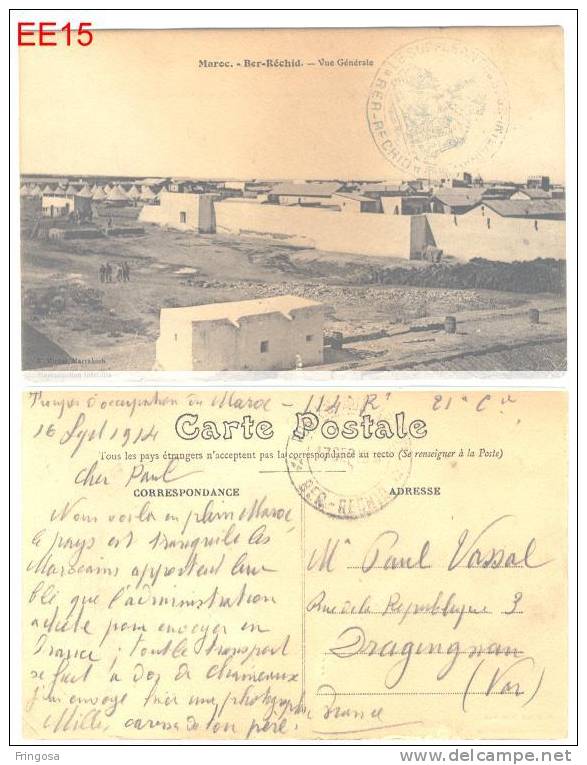 EE15
Maroc. - Ber-Réchid. - Vue Générale
BER-RECHID
Marrakech
Reproduction Interdite
Troupes d'occupation du Maroc - 114e Rt 21e Cie
16 Sept 1914
Carte Postale
Tous les pays étrangers n'acceptent pas la correspondance au recto (Se renseigner à la Poste)
BER-RECHID
cher Paul
CORRESPONDANCE
Nous voilà en plein Maroc
le pays est tranquile les
Marocains apportent leur
blé que l'administration
achète pour envoyer en
France ; tout le transport
se fait à dos de chameaux
j'ai envoyé hier une photographie
Milles caresses de ton père.
ADRESSE
Mr Paul Vassal
Rue de la Republique 3
Draguignan
(Var)
France
Fringosa
www.delcampe.net